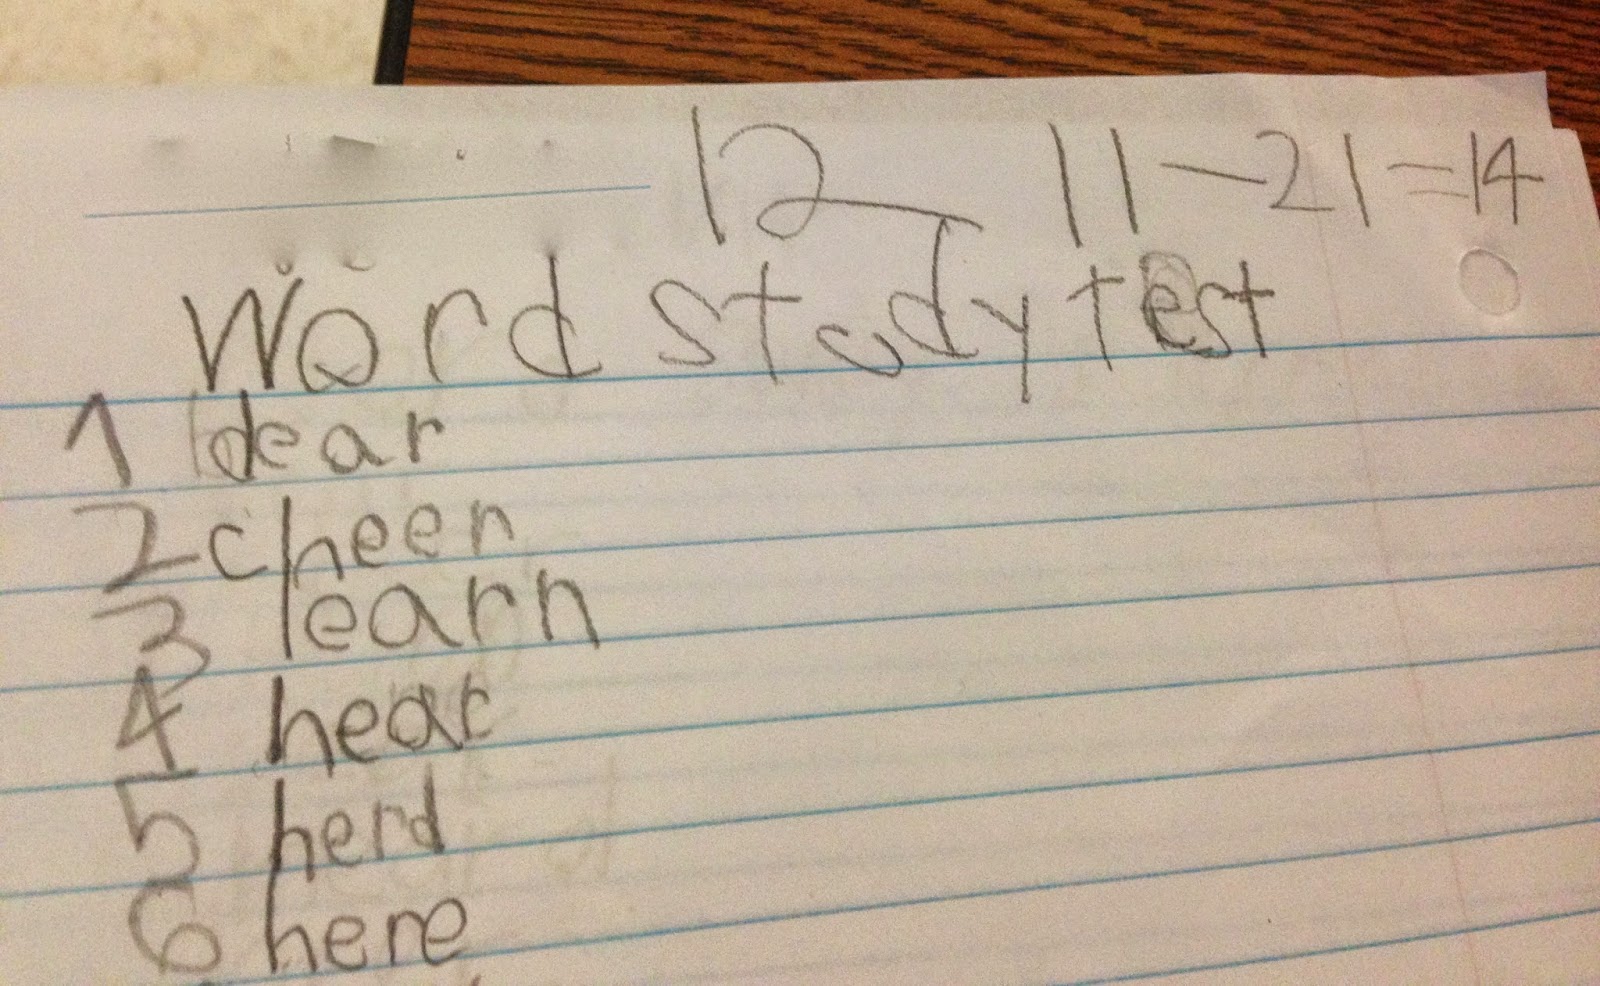 12 11-21=14
Word study test
1 dear
2 cheer
3 learn
4 hear
5 herd
6 here